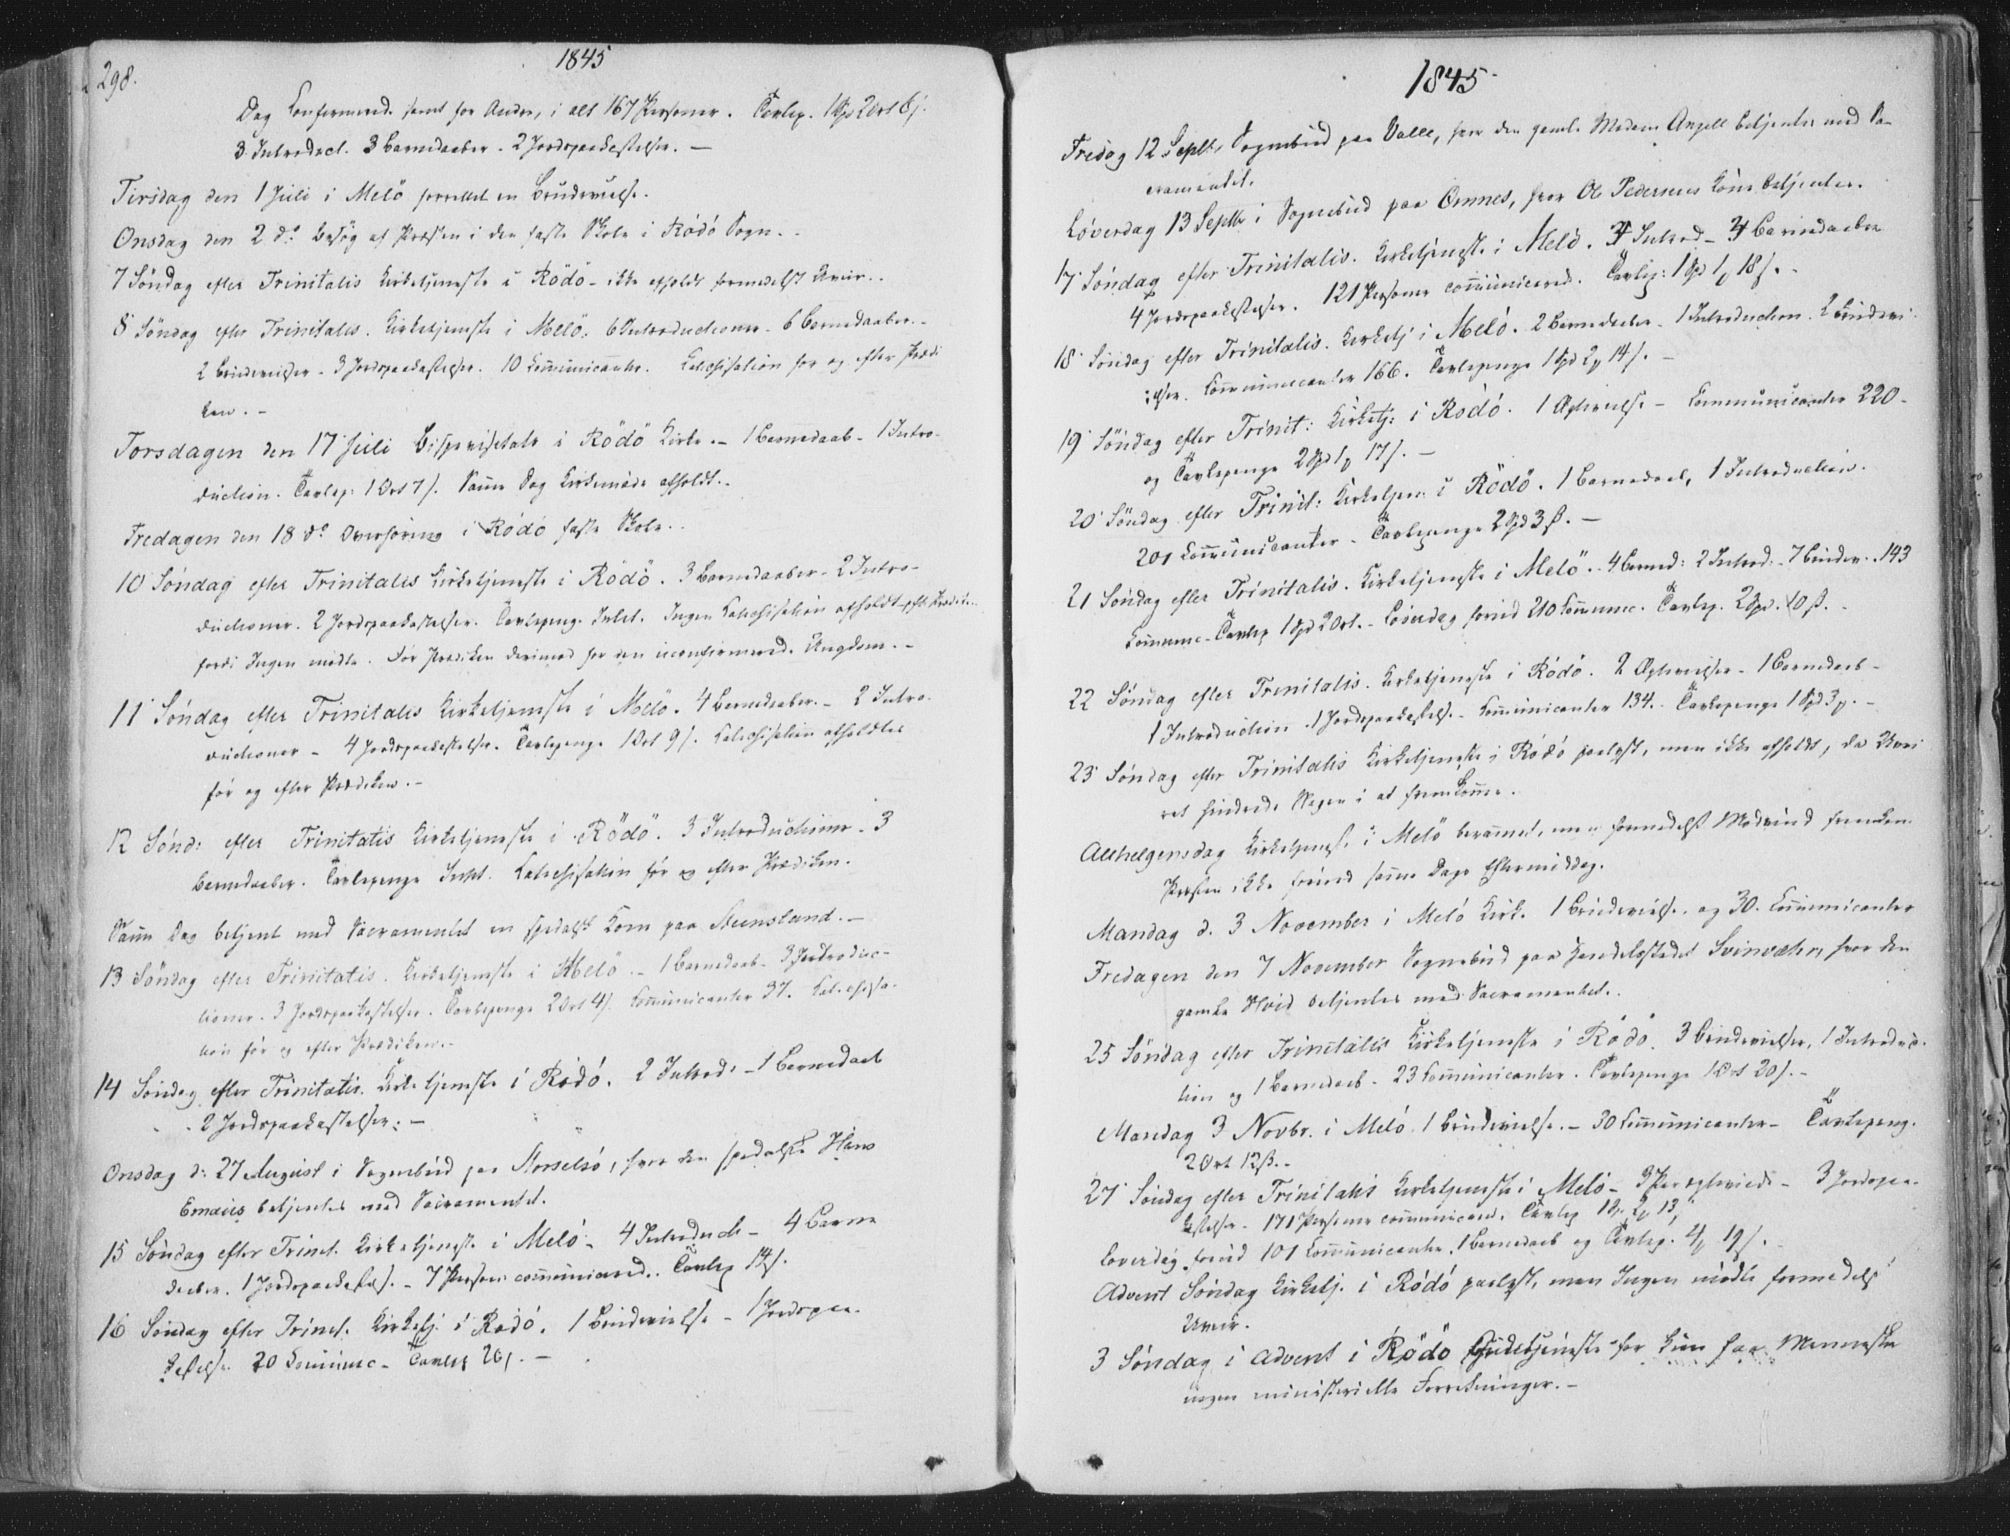 298.
1845
Dag Confirmered. samt for Andre, i alt 167 Personer. Tavlep. 1 Spd 2 Ort 6 s.
3 Introduct. 3 Barnedaaber. 2 Jordspaakastelser. —
Tirsdag den 1 Juli i Melö forrettet en Brudevielse.
Onsdag den 2 do Besøg af Præsten i den faste Skole i Rödö Sogn. -
7 Söndag efter Trinitatis Kirketjeneste i Rödö - ikke afholdt formedelst Uveir. -
8 Söndag efter Trinitatis. Kirketjeneste i Melö. 6 Introductioner - 6 Barnedaaber. -
2 Brudevielser - 3 Jordspaakastelser. 10 Communicanter. Catechisation før og efter Prædi
ken. -
Torsdagen den 17 Juli Bispevisitats i Rödö Kirke. - 1 Barnedaab - 1 Intro-
duction. Tavlep: 1 Ort 7 s. Samme Dag Kirkemøde afholdt. -
Fredagen den 18 do Overhøring i Rödö faste Skole. -
10 Söndag efter Trinitatis Kirketjeneste i Rödö. 3 Barnedaaber - 2 Intro-
ductioner. 2 Jordspaakastelser. Tavlepeng. Intet. Ingen Catechisation afholdt efter Prædiken
fordi Ingen mødte. Før Prædiken derimod for den uconfirmered. Ungdom. -
11 Söndag efter Trinitatis Kirketjeneste i Melö. 4 Barnedaaber. - 2 Intro-
ductioner - 4 Jordspaakastelser. Tavlepenge 1 Ort 9 s. Catechisation afholdtes
før og efter Prædiken. -
12 Sönd: efter Trinitatis Kirketjeneste i Rödö. 3 Introductioner - 3
Barnedaaber. Tavlepenge Intet. Catechisation før og efter Prædiken.
Samme Dag betjent med Sacramentet en spedalsk Kone paa Steensland. -
13 Söndag efter Trinitatis. Kirketjeneste i Melö. - 1 Barnedaab - 3 Introduc-
tioner. 3 Jordspaakastelser. Tavlepenge 2 Ort 4 s. Communicanter 37. Catechisa-
tion før og efter Prædiken. -
14 Söndag efter Trinitatis. Kirketjeneste i Rödö. 2 Introd: - 1 Barnedaab
2 Jordspaakastelser. —
Onsdag d: 27 August i Sognebud paa Storselsö, hvor den spedalske Hans
betjentes med Sacramentet.
15 Söndag efter Trinit. Kirketjeneste i Melö - 4 Introduct - 4 Barne
daaber. 1 Jordspaakastels. - 7 Person communicered. Tavlep 14 s.
16 Söndag efter Trinit. Kirketj. i Rödö. 1 Brudevielse - 1 Jordspaa-
kastelse 20 Communic - Tavlep 20 s. —
1845
Fredag 12 Septb. Sognebud paa Valle, hvor den gamle Madam Angell betjentes med Sa-
cramentet.
Løverdag 13 Septb i Sognebud paa Omnes, hvor Ole Pedersens Kone betjentes.
17 Söndag efter Trinitatis. Kirketjeneste i Melö. 4 Introd - 4 Barnedaaber
4 Jordspaakastelser. 121 Personer communicered. Tavlep: 1 Spd 1 18 s. -
18 Söndag efter Trinitatis. Kirketj i Melö. 2 Barnedaaber - 1 Introduction. 2 Brudevi-
elser. Communicanter 166. Tavlepenge 1 Spd 2 14 s. —
19 Söndag efter Trinit: Kirketj: i Rödö. 1 Ægtevielse - Communicanter 220 -
og Tavlepenge 2 Spd 1 17 s. —
20 Söndag efter Trinit: Kirketjen: i Rödö. 1 Barnedaab, 1 Introduction.
201 Communicanter - Tavlepenge 2 Spd 3 ß. —
21 Söndag efter Trinitatis. Kirketjeneste i Melö. - 4 Barned: 2 Introd: - 7 Brudev. - 143
Communic - Tavlep 1 Spd 2 Ort. - Løverdag forud 210 Communic. Tavlep. 2 Spd. 10 ß. -
22 Söndag efter Trinitatis. Kirketjeneste i Rödö. 2 Ægtevielser - 1 Barnedaab -
1 Introduction. 1 Jordspaakastels. - Communicanter 134. Tavlepenge 1 Spd 3. -
23 Söndag efter Trinitatis Kirketjeneste i Rödö paalyst, men ikke afholdt, da Uvei
ret hindrede Nogen i at fremkomme.
Allehelgensdag Kirketjeneste i Melö berammet, men formedelst Modvind fremkom
Præsten ikke førend samme Dags Eftermiddag.
Mandag d. 3 November i Melö Kirk. 1 Brudevielse og 30 Communicanter
Fredagen den 7 November Sognebud paa Handelsstedet Svinvæhr, hvor den
gamle Hvid betjentes med Sacramentet. -
25 Söndag efter Trinitatis Kirketjeneste i Rödö. 3 Brudevielser, 1 Introduc-
tion og 1 Barnedaab - 23 Communicanter. Tavlepenge 1 Ort 20 s. -
Mandag 3 Novbr. i Melö 1 Brudevielse. - 30 Communicanter - Tavlepeng.
2 Ort 12 ß. -
27 Söndag efter Trinitatis Kirketjeneste i Melö - 3 Par ægteviede - 3 Jordspaa-
kastelser - 171 Personer communicered. Tavlep 1 Sp. 2 13
Løverdag forud 101 Communicanter. 1 Barnedaab og Tavlep. 4 19 s. -
Advent Söndag Kirketj. i Rödö paalyst, men Ingen mødte formedelst
Uveir.
3 Söndag i Advent i Rödö Gudstjeneste for kun faa Mennesker
ingen ministerielle Forretninger. -